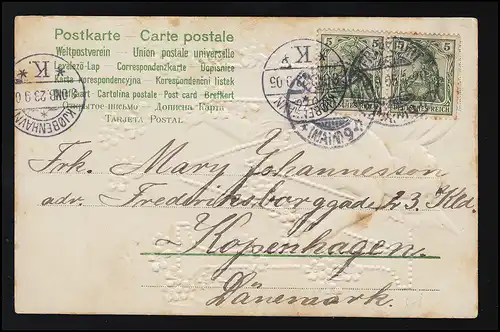 Postkarte - Carte postale
Weltpostverein - Union postale universelle
Levelező-Lap - Correspondenzkarte - Dopisnice
Karta korrespondencyjna - Korespondenční lístek
Cartolina postale - Post card - Brefkort
Открытое письмо - Дописна Карта
TARJETA POSTAL
5 5
REICH
KJØBENHAVN
K
OMB 23 9 0
K
KJØBENHAVN
9 05
(MAIN) 9
Frk. Mary Johannesson
adr. Frederiksborggade 23. Kld.
Kopenhagen.
Dänemark.